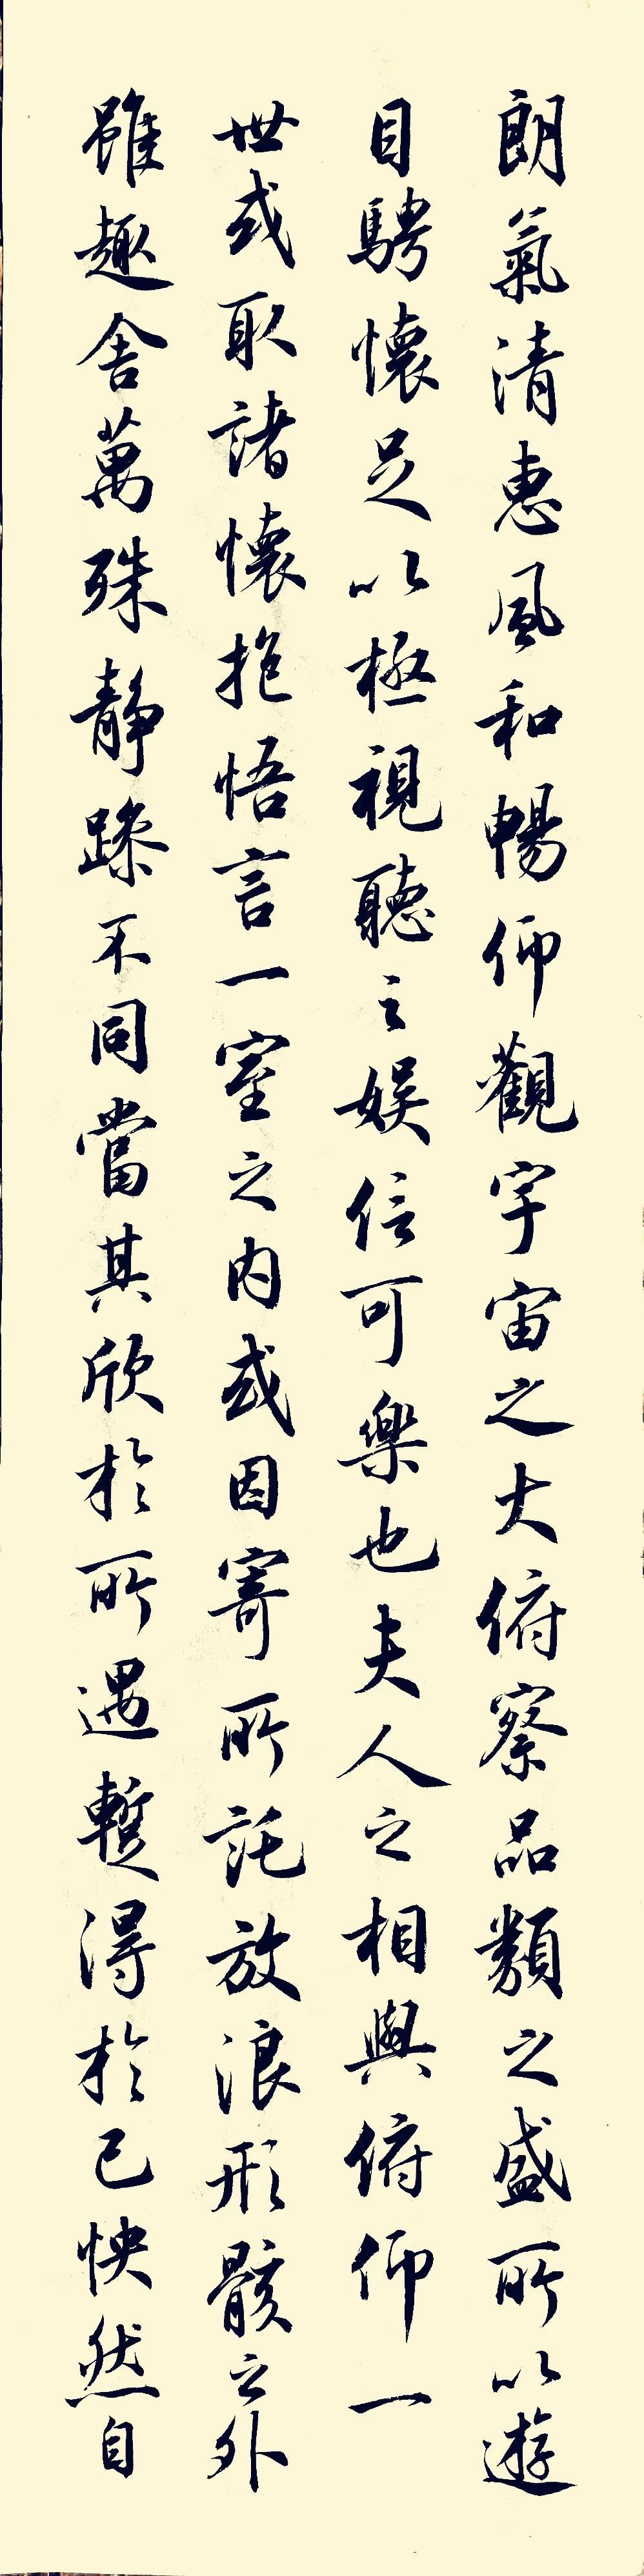 朗氣清惠風和暢仰觀宇宙之大俯察品類之盛所以遊
目騁懷足以極視聽之娛信可樂也夫人之相與俯仰一
世或取諸懷抱悟言一室之內或因寄所託放浪形骸之外
雖趣舍萬殊靜躁不同當其欣於所遇暫得於己怏然自